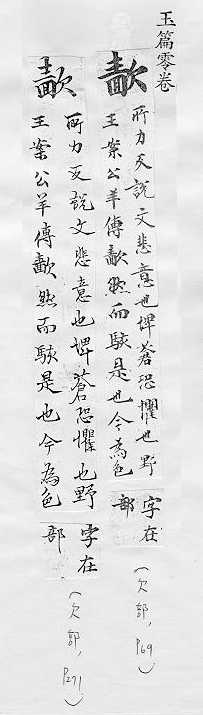 玉篇零卷
㱇
所力反說文悲意也埤蒼恐懼也野
王案公羊傳㱇然而駭是也今為色
字在
部
(欠部, P69)
㱇
所力反說文悲意也埤蒼恐懼也野
王案公羊傳㱇然而駭是也今為色
字在
部
(欠部, P271)